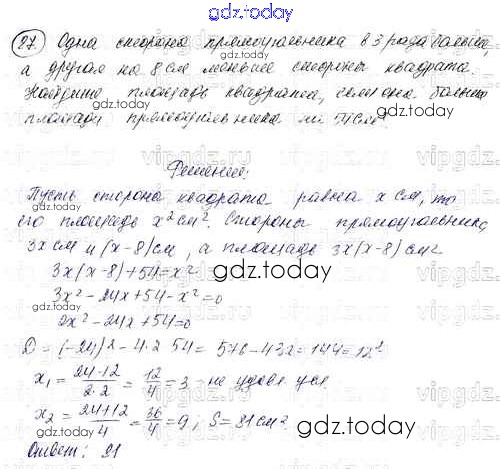 gdz.today
27. Одна сторона прямоугольника в 3 раза больше,
а другая на 8 см меньше стороны квадрата.
Найдите площадь квадрата, если она больше
площади прямоугольника на 54 см².
Решение:
Пусть сторона квадрата равна x см, то
его площадь x² см². Стороны прямоугольника
3x см и (x-8) см, а площадь 3x(x-8) см²
3x(x-8)+54=x²
3x²-24x+54-x²=0
2x²-24x+54=0
D=(-24)²-4·2·54=576-432=144=12²
x₁=(24-12)/(2·2)=12/4=3 не удовл. усл.
x₂=(24+12)/4=36/4=9; S=81 см²
Ответ: 81
gdz.today